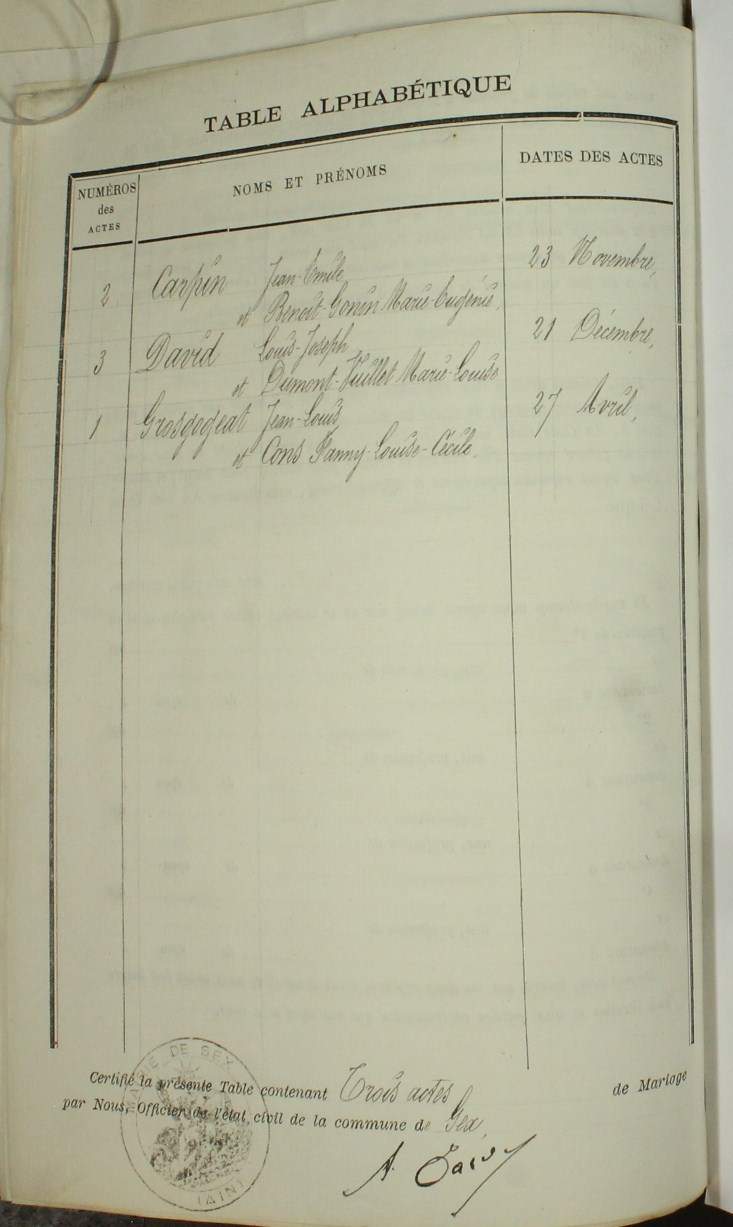 TABLE ALPHABÉTIQUE
NUMÉROS
des
ACTES
NOMS ET PRÉNOMS
DATES DES ACTES
2 Carpin Jean-Emile 23 Novembre,
et Benoit-Gonin Marie-Eugénie,
3 David Louis-Joseph 21 Décembre,
et Dumont-Vuillet Marie-Louise
1 Grosgogeat Jean-Louis 27 Avril,
et Cons Fanny-Louise-Cécile.
Certifié la présente Table contenant Trois actes de Mariage
par Nous, Officier de l'état civil de la commune de Gex,
MAIRIE DE GEX
(AIN)
A.